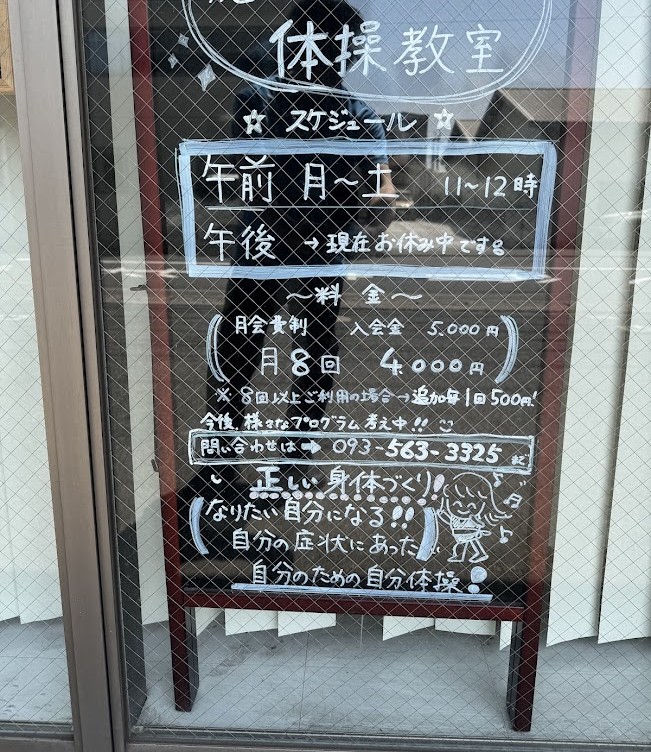 体操教室
☆ スケジュール ☆
午前 月～土 11～12時
午後 →現在お休み中です
～料金～
月会費制 入会金 5,000円
月8回 4,000円
※8回以上ご利用の場合→追加毎1回500円!
今後、様々なプログラム考え中!!
問い合わせは➡093-563-3325まで
正しい身体づくり!
なりたい自分になる!!
自分の症状にあった
自分のための自分体操!